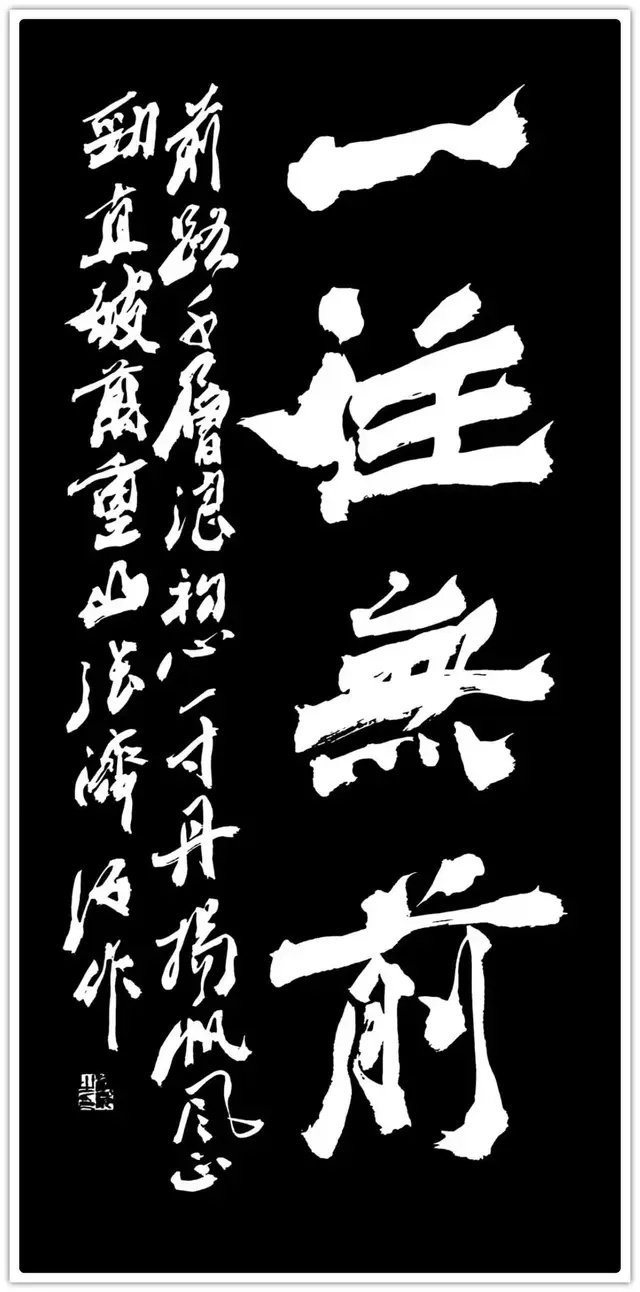 一往無前
前路千層浪初心一寸丹揚帆風正
勁直破萬重山張濟作